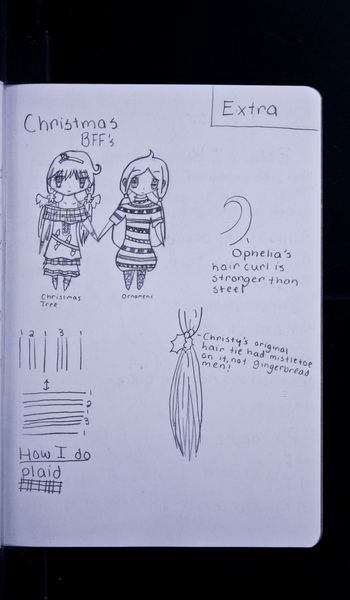 Extra
Christmas
BFF's
Christmas
Tree
Ornament
Ophelia's
hair curl is
stronger than
steel
Christy's original
hair tie had mistletoe
on it, not gingerbread
men!
1 2 1 3 1
1
2
1
3
1
How I do
plaid